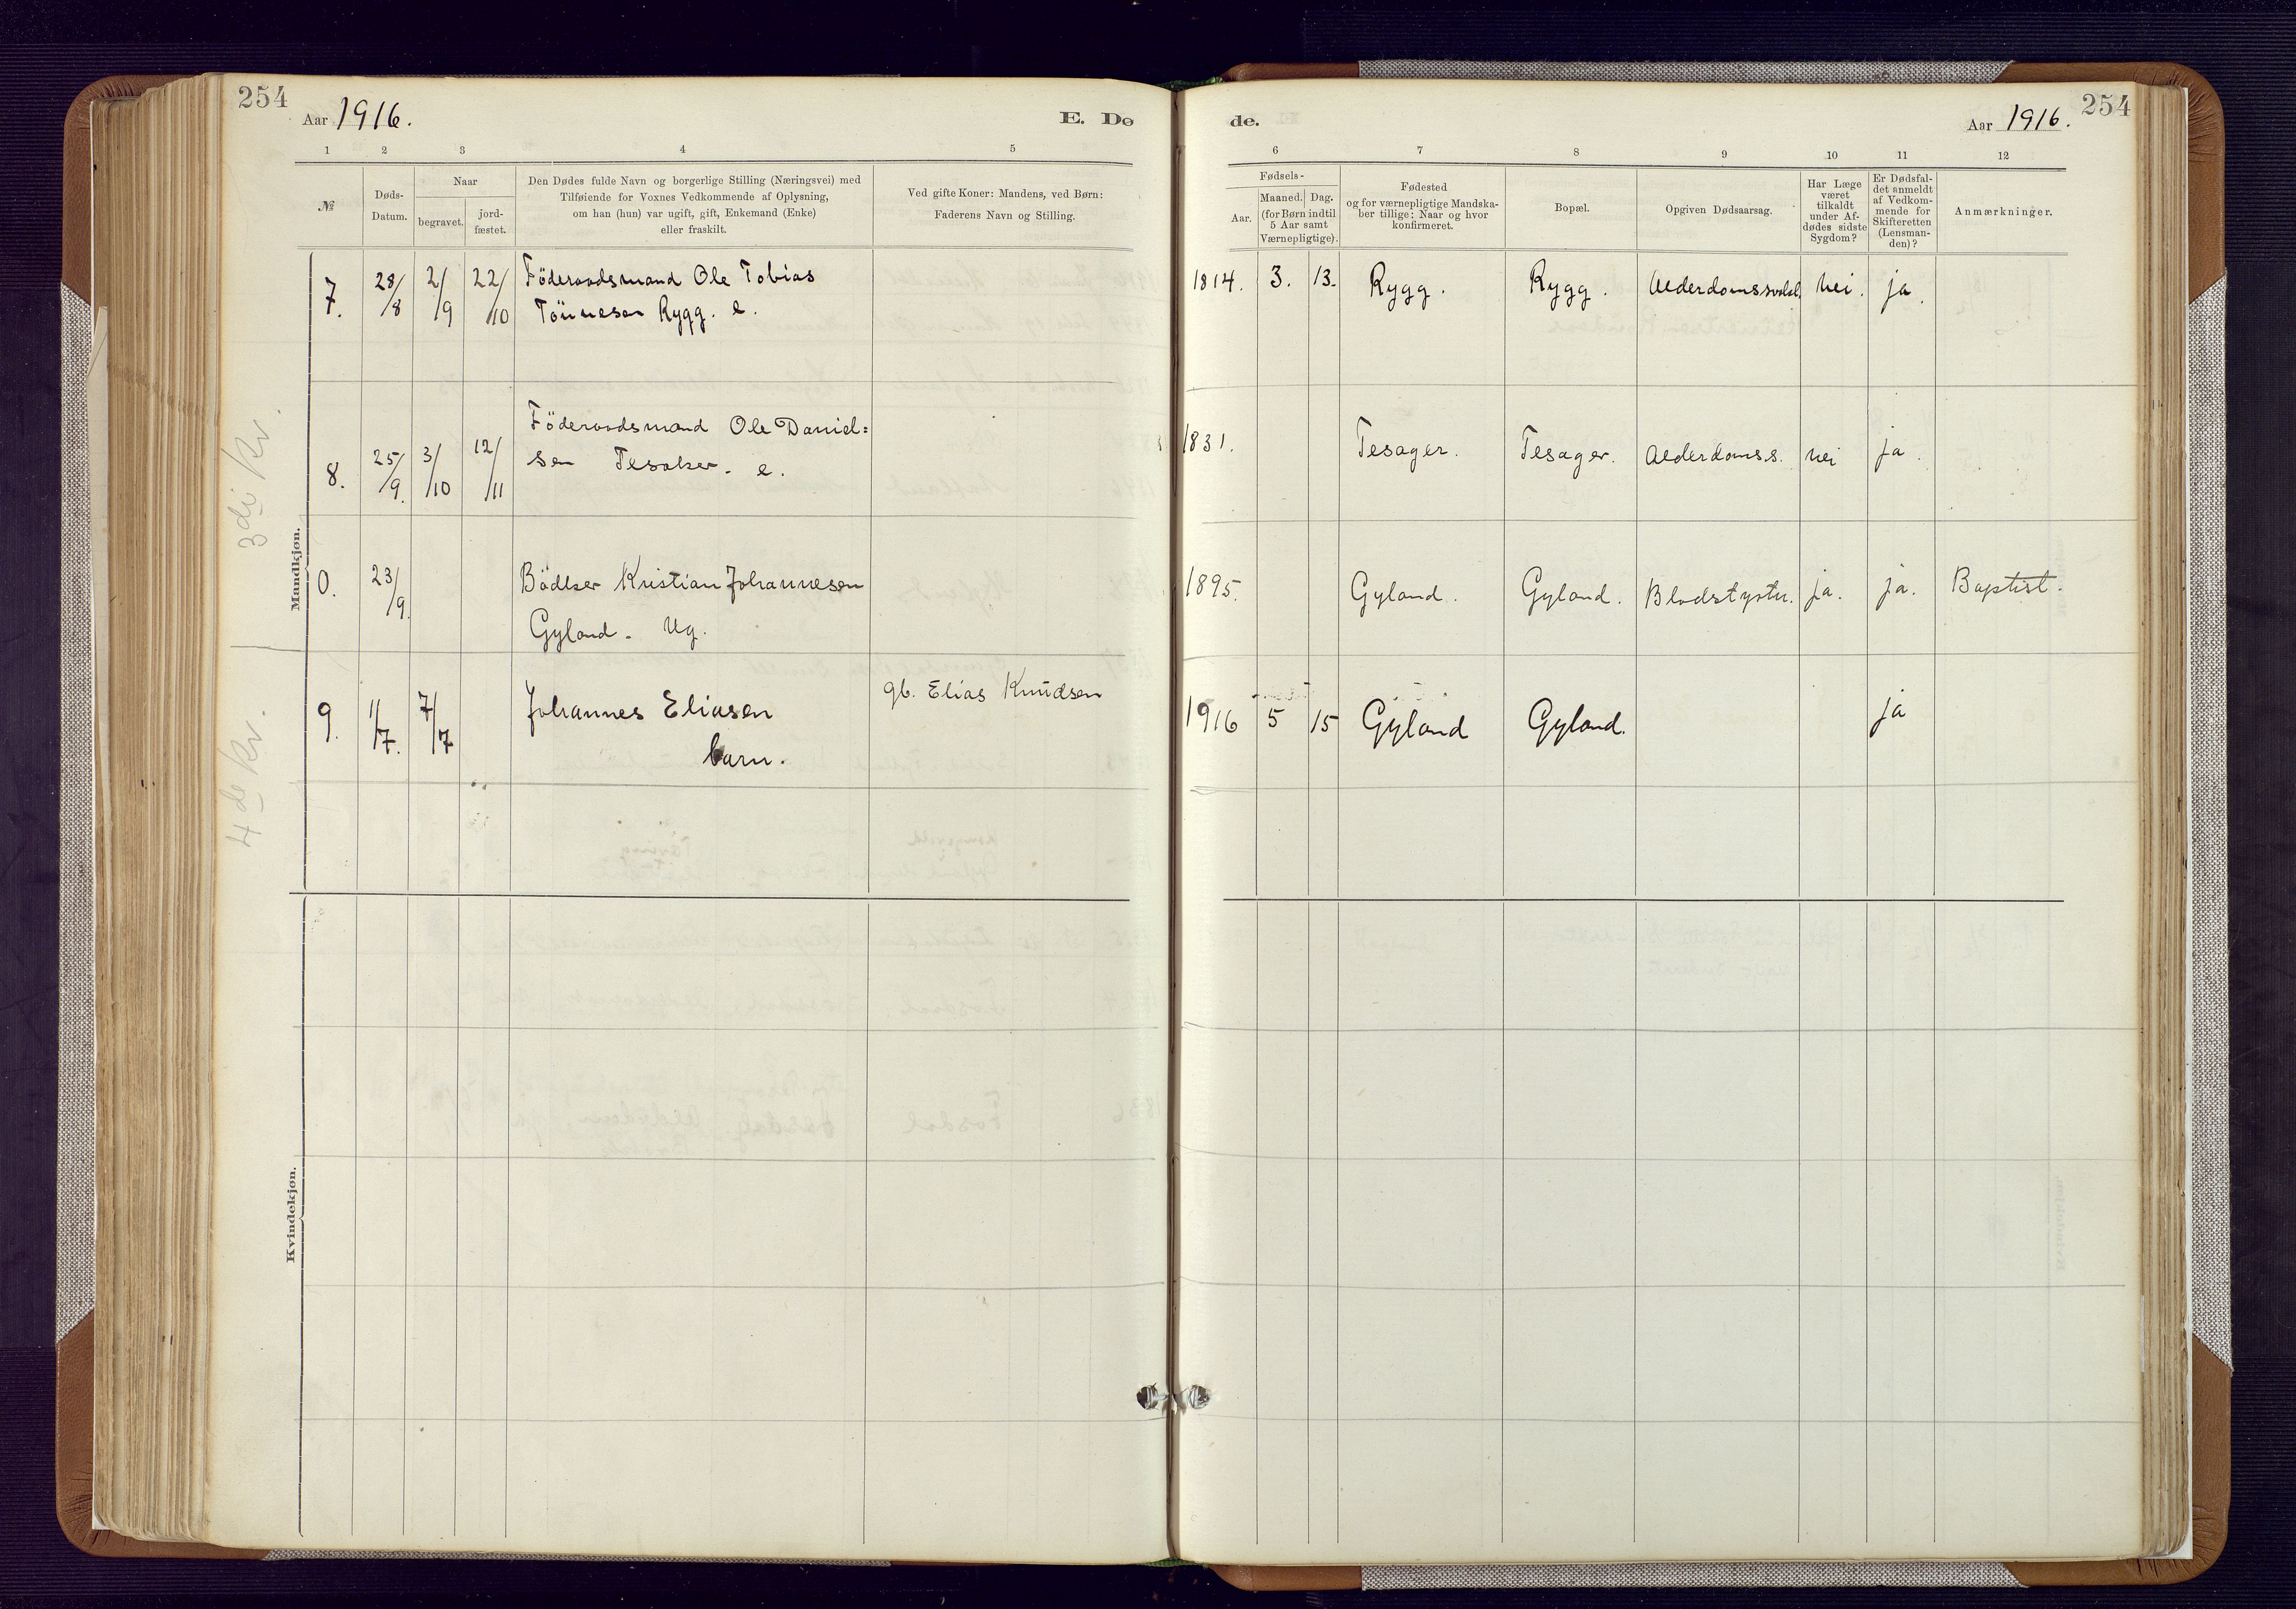 254
Aar 1916.
E. Dø
de.
Aar 1916.
254
1 2 3 4 5
6 7 8 9 10 11 12
№
Døds-
Datum.
Naar
begravet.
jord-
fæstet.
Den Dødes fulde Navn og borgerlige Stilling (Næringsvei) med
Tilføiende for Voxnes Vedkommende af Oplysning,
om han (hun) var ugift, gift, Enkemand (Enke)
eller fraskilt.
Ved gifte Koner: Mandens, ved Børn:
Faderens Navn og Stilling.
Fødsels-
Aar.
Maaned. Dag.
(for Børn indtil
5 Aar samt
Værnepligtige).
Fødested
og for værnepligtige Mandska-
ber tillige: Naar og hvor
konfirmeret.
Bopæl.
Opgiven Dødsaarsag.
Har Læge
været
tilkaldt
under Af-
dødes sidste
Sygdom?
Er Dødsfal-
det anmeldt
af Vedkom-
mende for
Skifteretten
(Lensman-
den)?
Anmærkninger.
Mandkjøn.
3di kv.
7. 28/8 2/9 22/10 Föderaadsmand Ole Tobias
Tönnesen Rygg. e.
1814. 3. 13. Rygg. Rygg. Alderdomssvakh. nei. ja.
8. 25/9. 3/10 12/11 Föderaadsmand Ole Daniel=
sen Tesaker. e.
1831. Tesager. Tesager. Alderdomss. nei ja.
0. 23/9. Bödker Kristian Johannesen
Gyland. Ug.
1895. Gyland. Gyland. Blodstyrtn. ja. ja. Baptist.
4de kv.
9. 1/7. 7/7 Johannes Eliasen
barn.
gb. Elias Knudsen
1916 5 15 Gyland Gyland. ja
Kvindekjøn.